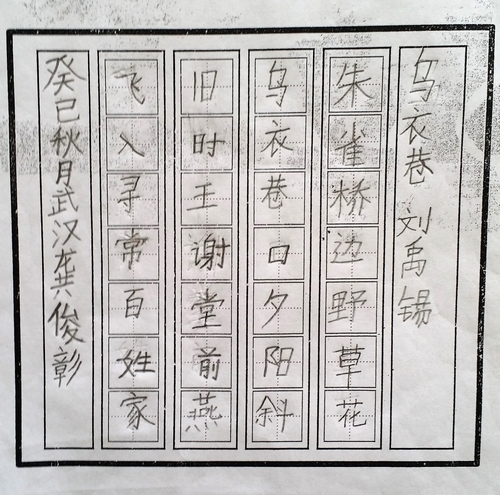 乌衣巷 刘禹锡
朱雀桥边野草花
乌衣巷口夕阳斜
旧时王谢堂前燕
飞入寻常百姓家
癸巳秋月武汉龚俊彰